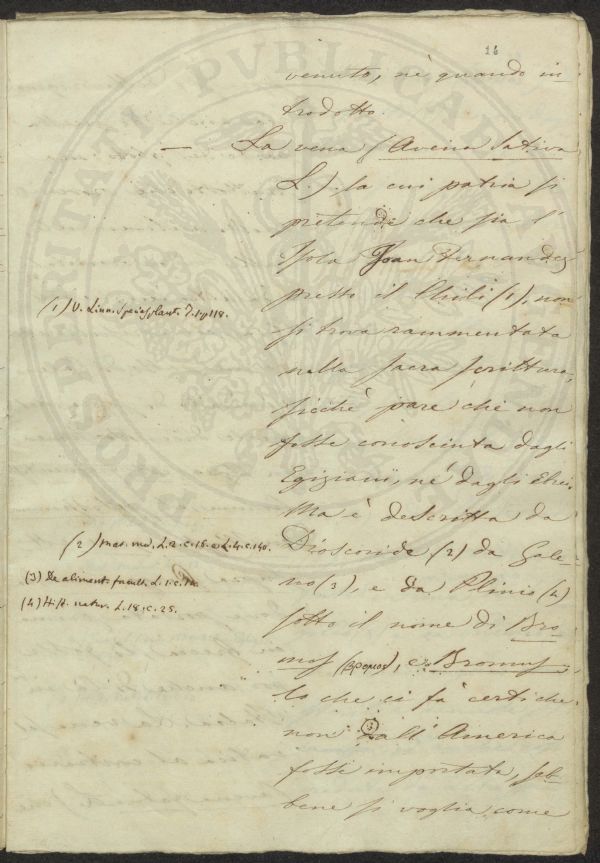 16
venuto, nè quando in-
trodotto.
— La vena (Avena Sativa
L.) la cui patria si
pretende che sia l'
Isola Joan Fernandez
presso il Chili (1), non
si trova rammentata
nella sacra scrittura,
sicchè pare che non
fosse conosciuta dagli
Egiziani, nè dagli Ebrei
Ma è descritta da
Dioscoride (2) da Gale-
no (3), e da Plinio (4)
sotto il nome di Bro-
mos (βρομος), e Bromus
lo che ci fà certi che
non dall' America
fosse importata, seb-
bene si voglia come
(1) V. Linn. Species plant. T. 1. p. 118.
(2) Mat. med. L. 2. c. 16. e L. 4. c. 140.
(3) De aliment. facult. L. 1. c. 14.
(4) Hist. natur. L. 18. c. 25.
PROSPERITATI PVBLICAE